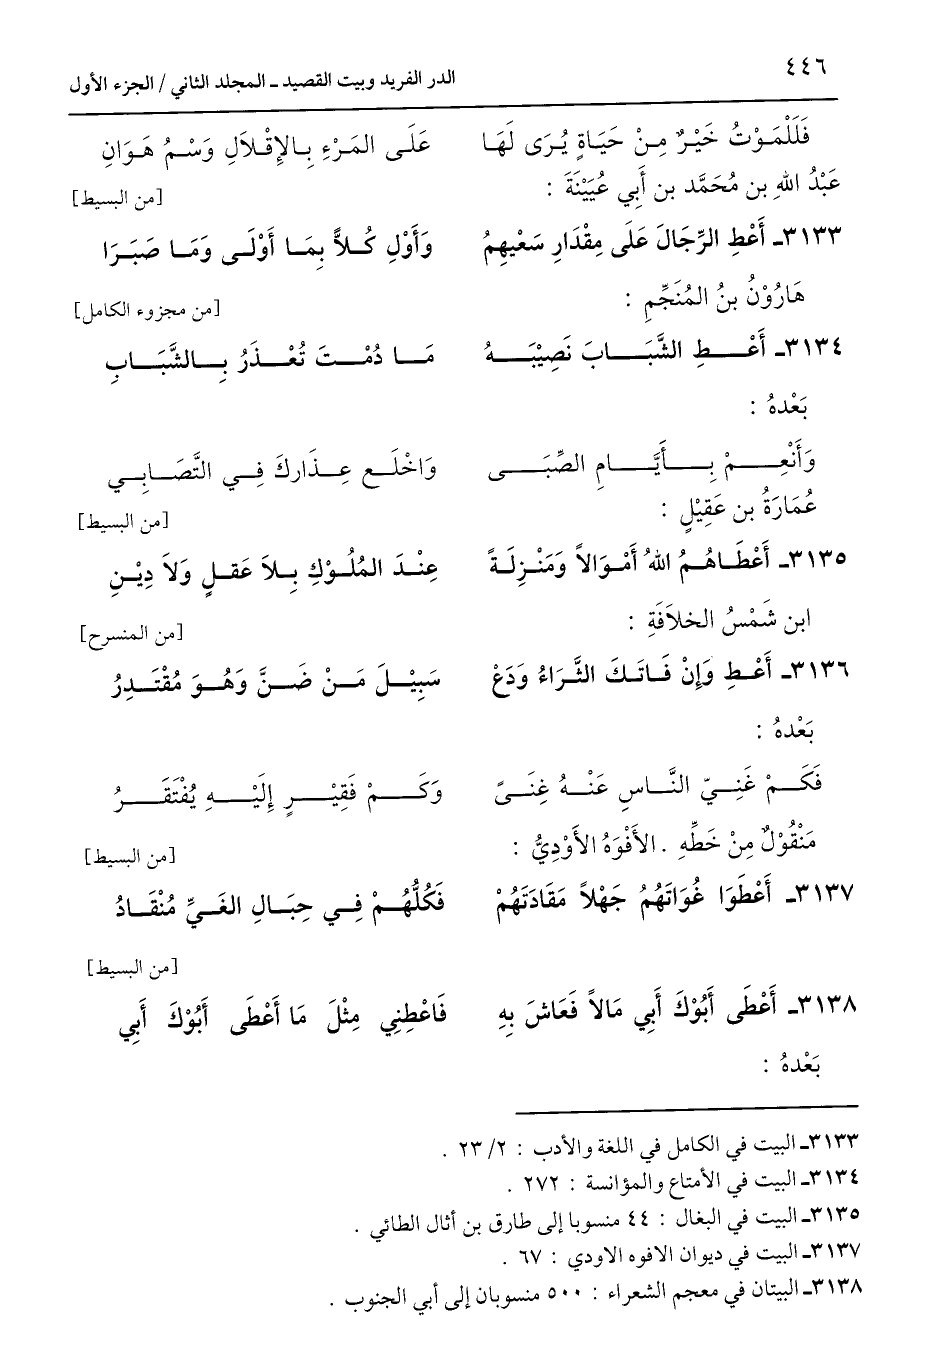 ٤٤٦
الدر الفريد وبيت القصيد ـ المجلد الثاني / الجزء الأول
فَلَلْمَوْتُ خَيْرٌ مِنْ حَيَاةٍ يُرَى لَهَا عَلَى المَرْءِ بِالإِقْلاَلِ وَسْمُ هَوَانِ
عَبْدُ اللهِ بن مُحَمَّد بن أَبي عُيَيْنَةَ : [من البسيط]
٣١٣٣ـ أَعْطِ الرِّجَالَ عَلَى مِقْدَارِ سَعْيِهِمُ وَأَوْلِ كُلاًّ بِمَا أَوْلَى وَمَا صَبَرَا
هَارُوْنُ بنُ المُنَجِّمِ : [من مجزوء الكامل]
٣١٣٤ـ أَعْطِ الشَّبَابَ نَصِيْبَهُ مَا دُمْتَ تُعْذَرُ بِالشَّبَابِ
بَعْدهُ :
وَأَنْعِمْ بِأَيَّامِ الصِّبَى وَاخْلَع عِذَاركَ فِي التَّصَابِي
عُمَارَةُ بن عَقِيْلٍ : [من البسيط]
٣١٣٥ـ أَعْطَاهُمُ اللهُ أَمْوَالاً وَمَنْزِلَةً عِنْدَ المُلُوْكِ بِلاَ عَقلٍ وَلاَ دِيْنِ
ابن شَمْسُ الخلاَفَةِ : [من المنسرح]
٣١٣٦ـ أَعْطِ وَإِنْ فَاتَكَ الثَّرَاءُ وَدَعْ سَبِيْلَ مَنْ ضَنَّ وَهُوَ مُقْتَدِرُ
بَعْدهُ :
فَكَمْ غَنِيّ النَّاسِ عَنْهُ غِنَىً وَكَمْ فَقِيْرٍ إِلَيْهِ يُفْتَقَرُ
مَنْقُوْلٌ مِنْ خَطِّهِ . الأَفْوَهُ الأَوْدِيُّ : [من البسيط]
٣١٣٧ـ أَعْطَوَا غُوَاتَهُمُ جَهْلاً مَقَادَتَهُمْ فَكُلُّهُمْ فِي حِبَالِ الغَيِّ مُنْقَادُ
[من البسيط]
٣١٣٨ـ أَعْطَى أَبُوْكَ أَبِي مَالاً فَعَاشَ بِهِ فَاعْطِنِي مِثْلَ مَا أَعْطَى أَبُوْكَ أَبِي
بَعْدهُ :
٣١٣٣ـ البيت في الكامل في اللغة والأدب : ٢/ ٢٣ .
٣١٣٤ـ البيت في الأمتاع والمؤانسة : ٢٧٢ .
٣١٣٥ـ البيت في البغال : ٤٤ منسوبا إلى طارق بن أثال الطائي .
٣١٣٧ـ البيت في ديوان الافوه الاودي : ٦٧ .
٣١٣٨ـ البيتان في معجم الشعراء : ٥٠٠ منسوبان إلى أبي الجنوب .